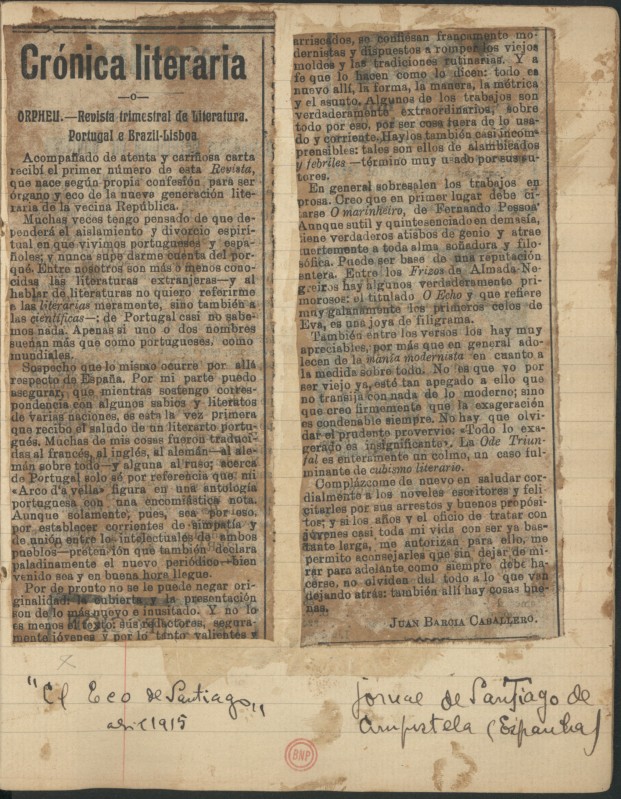 Crónica literaria
—o—
ORPHEU.—Revista trimestral de Literatura.
Portugal e Brazil-Lisboa
Acompañado de atenta y cariñosa carta
recibí el primer número de esta Revista,
que nace según propia confesión para ser
órgano y eco de la nueva generación lite-
raria de la vecina República.
Muchas veces tengo pensado de que de-
penderá el aislamiento y divorcio espiri-
tual en que vivimos portugueses y espa-
ñoles; y nunca supe darme cuenta del por-
qué. Entre nosotros son más o menos cono-
cidas las literaturas extranjeras—y al
hablar de literaturas no quiero referirme
a las literarias meramente, sino también a
las científicas—; de Portugal casi no sabe-
mos nada. Apenas si uno o dos nombres
sueñan más que como portugueses, como
mundiales.
Sospecho que lo mismo ocurre por allá
respecto de España. Por mi parte puedo
asegurar, que mientras sostengo corres-
pondencia con algunos sabios y literatos
de varias naciones, es esta la vez primera
que recibo el saludo de un literarto portu-
gués. Muchas de mis cosas fueron traduci-
das al francés, al inglés, al alemán—al ale-
mán sobre todo—y alguna al ruso; acerca
de Portugal solo sé por referencia que mi
«Arco d'a vella» figura en una antología
portuguesa con una encomiástica nota.
Aunque solamente, pues, sea por eso,
por establecer corrientes de simpatía y
de unión entre los intelectuales de ambos
pueblos—pretensión que también declara
paladinamente el nuevo periódico—bien
venido sea y en buena hora llegue.
Por de pronto no se le puede negar ori-
ginalidad: la cubierta y la presentación
son de lo más nuevo e inusitado. Y no lo
es menos el texto: sus redactores, segura-
mente jóvenes y por lo tanto valientes y
arriscados, se confiesan francamente mo-
dernistas y dispuestos a romper los viejos
moldes y las tradiciones rutinarias. Y a
fe que lo hacen como lo dicen: todo es
nuevo allí, la forma, la manera, la métrica
y el asunto. Algunos de los trabajos son
verdaderamente extraordinarios, sobre
todo por eso, por ser cosa fuera de lo usa-
do y corriente. Haylos también casi incom-
prensibles: tales son ellos de alambicados
y febriles—término muy usado por sus au-
tores.
En general sobresalen los trabajos en
prosa. Creo que en primer lugar debe ci-
tarse O marinheiro, de Fernando Pessoa.
Aunque sutil y quintesenciado en demasía,
tiene verdaderos atisbos de genio y atrae
fuertemente a toda alma soñadora y filo-
sófica. Puede ser base de una reputación
entera. Entre los Frizos de Almada-Ne-
greiros hay algunos verdaderamente pri-
morosos: el titulado O Echo y que refiere
muy galanamente los primeros celos de
Eva, es una joya de filigrama.
También entre los versos los hay muy
apreciables, por más que en general ado-
lecen de la manía modernista en cuanto a
la medida sobre todo. No es que yo por
ser viejo ya, esté tan apegado a ello que
no transija con nada de lo moderno; sino
que creo firmemente que la exageración
es condenable siempre. No hay que olvi-
dar el prudente provervio: «Todo lo exa-
gerado es insignificante». La Ode Triun-
fal es enteramente un colmo, un caso ful-
minante de cubismo literario.
Complázcome de nuevo en saludar cor-
dialmente a los noveles escritores y feli-
citarles por sus arrestos y buenos propósi-
tos; y si los años y el oficio de tratar con
jóvenes casi toda mi vida con ser ya bas-
tante lerga, me autorizan para ello, me
permito aconsejarles que sin dejar de mi-
rar para adelante como siempre debe ha-
cerse, no olviden del todo a lo que van
dejando atrás: también allí hay cosas bue-
nas.
JUAN BARCIA CABALLERO.
"El Eco de Santiago"
abril 1915
jornal de Santiago de
Compostela (Espanha)
BNP